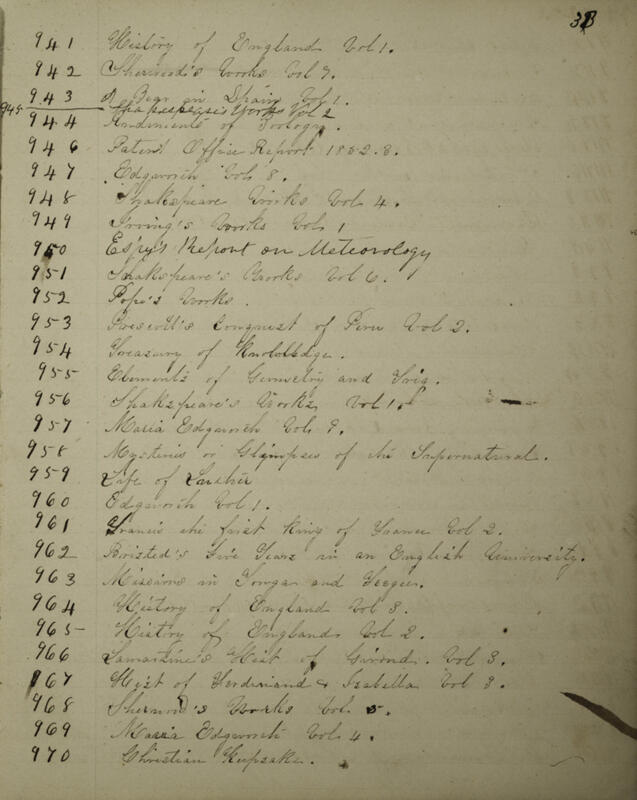 38
941 History of England Vol 1.
942 Sherwood's Works Vol 7.
943 A Year in Spain Vol 1.
945 Shakespeare's Works Vol 2
944 Rudiments of Zoology.
946 Patent Office Report 1852.3.
947 Edgworth Vol 8.
948 Shakspeare Works Vol 4.
949 Irving's Works Vol 1
950 Espy's Report on Meteorology
951 Shakspeare's Works Vol 6.
952 Pope's Works.
953 Prescott's Conquest of Peru Vol 2.
954 Treasury of Knowledge.
955 Elements of Geometry and Trig.
956 Shakspeare's Works Vol 1.
957 Maria Edgworth Vol 9.
958 Mysteries or Glimpses of the Supernatural.
959 Life of Luther
960 Edgworth Vol 1.
961 Francis the first King of France Vol 2.
962 Bristed's Five Years in an English University.
963 Missions in Tongar and Feegee.
964 History of England Vol 3.
965 History of England Vol 2.
966 Lamartine's Hist of Girond. Vol 3.
967 Hist of Ferdinand & Isabella Vol 3.
968 Sherwood's Works Vol 5.
969 Maria Edgworth Vol 4.
970 Christian Keepsake.